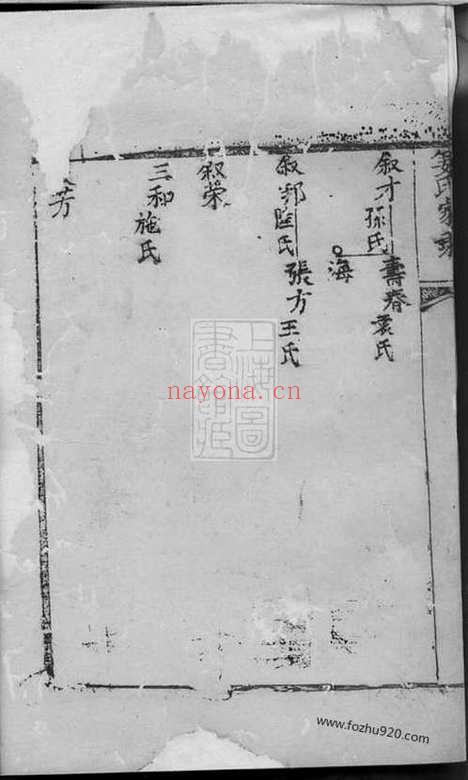 氏家乘
叙才 孫氏 壽春 袁氏
海
叙邦 陸氏 張方 王氏
叙榮
三和 施氏
芳
上海圖書館藏
nayona.cn
www.fozhu920.com